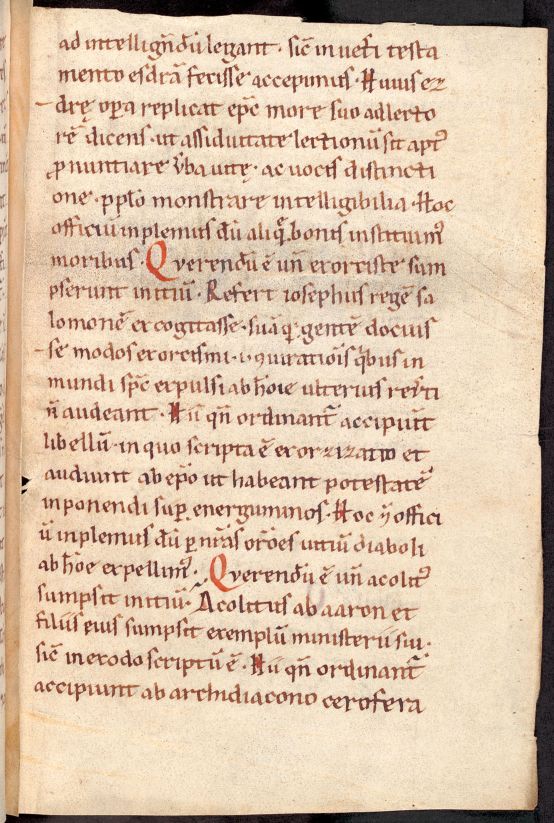 ad intelligñdũ legant · sič in veťi testa
mento esdrã fecisse accepimus · Huius ez
drę opera replicat ep̃c more suo ad lecto
rẽ dicens · ut assiduitate lectionũ sit apt᷒
ꝓnuntiare ṽba uitę · ac uocis distincti
one · pp̃lo monstrare intelligibilia · Hoc
officiũ inplemus dũ aliq̃ bonis instituim᷒
moribus · Querendũ ẽ uñ exorciste sum
pserunt initiũ · Refert iosephus regẽ sa
lomonẽ excogitasse · suãq; gentẽ docuis
se modos exorcismi · ꝯiurationis quibus in
mundi sp̃c expulsi ab hõie ulterius reṽti
ñ audeant · Hii qñ ordinant᷑ accipiũt
libellũ in quo scripta ẽ exorzizatio et
audiunt ab ep̃o ut habeant potestatẽ
inponendi sup̱ energuminos · Hoc offici
ũ inplemus dũ p̱ nr̃as or̃oes uitiũ diaboli
ab hõe expellim᷒ · Querendũ ẽ uñ acolit᷒
sumpsit initiũ · Acolitus ab aaron et
filiis eius sumpsit exemplũ ministerii sui ·
sič in exodo scriptũ ẽ · Hii qñ ordinant᷑
accipiunt ab archidiacono cerofera